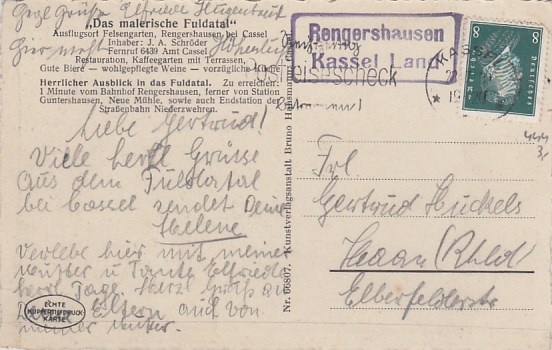 „Das malerische Fuldatal"
Ausflugsort Felsengarten, Rengershausen bei Cassel
Inhaber: J. A. Schröder
Fernruf 6439 Amt Cassel
Restauration, Kaffeegarten mit Terrassen,
Gute Biere — wohlgepflegte Weine — vorzügliche
Herrlicher Ausblick in das Fuldatal. Zu erreichen:
1 Minute vom Bahnhof Rengershausen, ferner von Station
Guntershausen, Neue Mühle, sowie auch Endstation der
Straßenbahn Niederzwehren.
Liebe Gertrud!
Viele herzl Grüsse
aus dem Fuldatal
bei Cassel sendet Deine
Helene
Verlebe hier mit meiner
Mutter u Tante Elfriede
herrl Tage. Herzl Gruß an
Eltern auch von
meiner Mutter.
ECHTE
KUPFERTIEFDRUCK
KARTE
Nr. 66807. Kunstverlagsanstalt Bruno Hansmann
Rengershausen
Kassel Land
Reisescheck
KASSEL
8 8
Deutsches Reich
Frl
Gertrud Hückels
Haan (Rhld)
Elberfelderstr